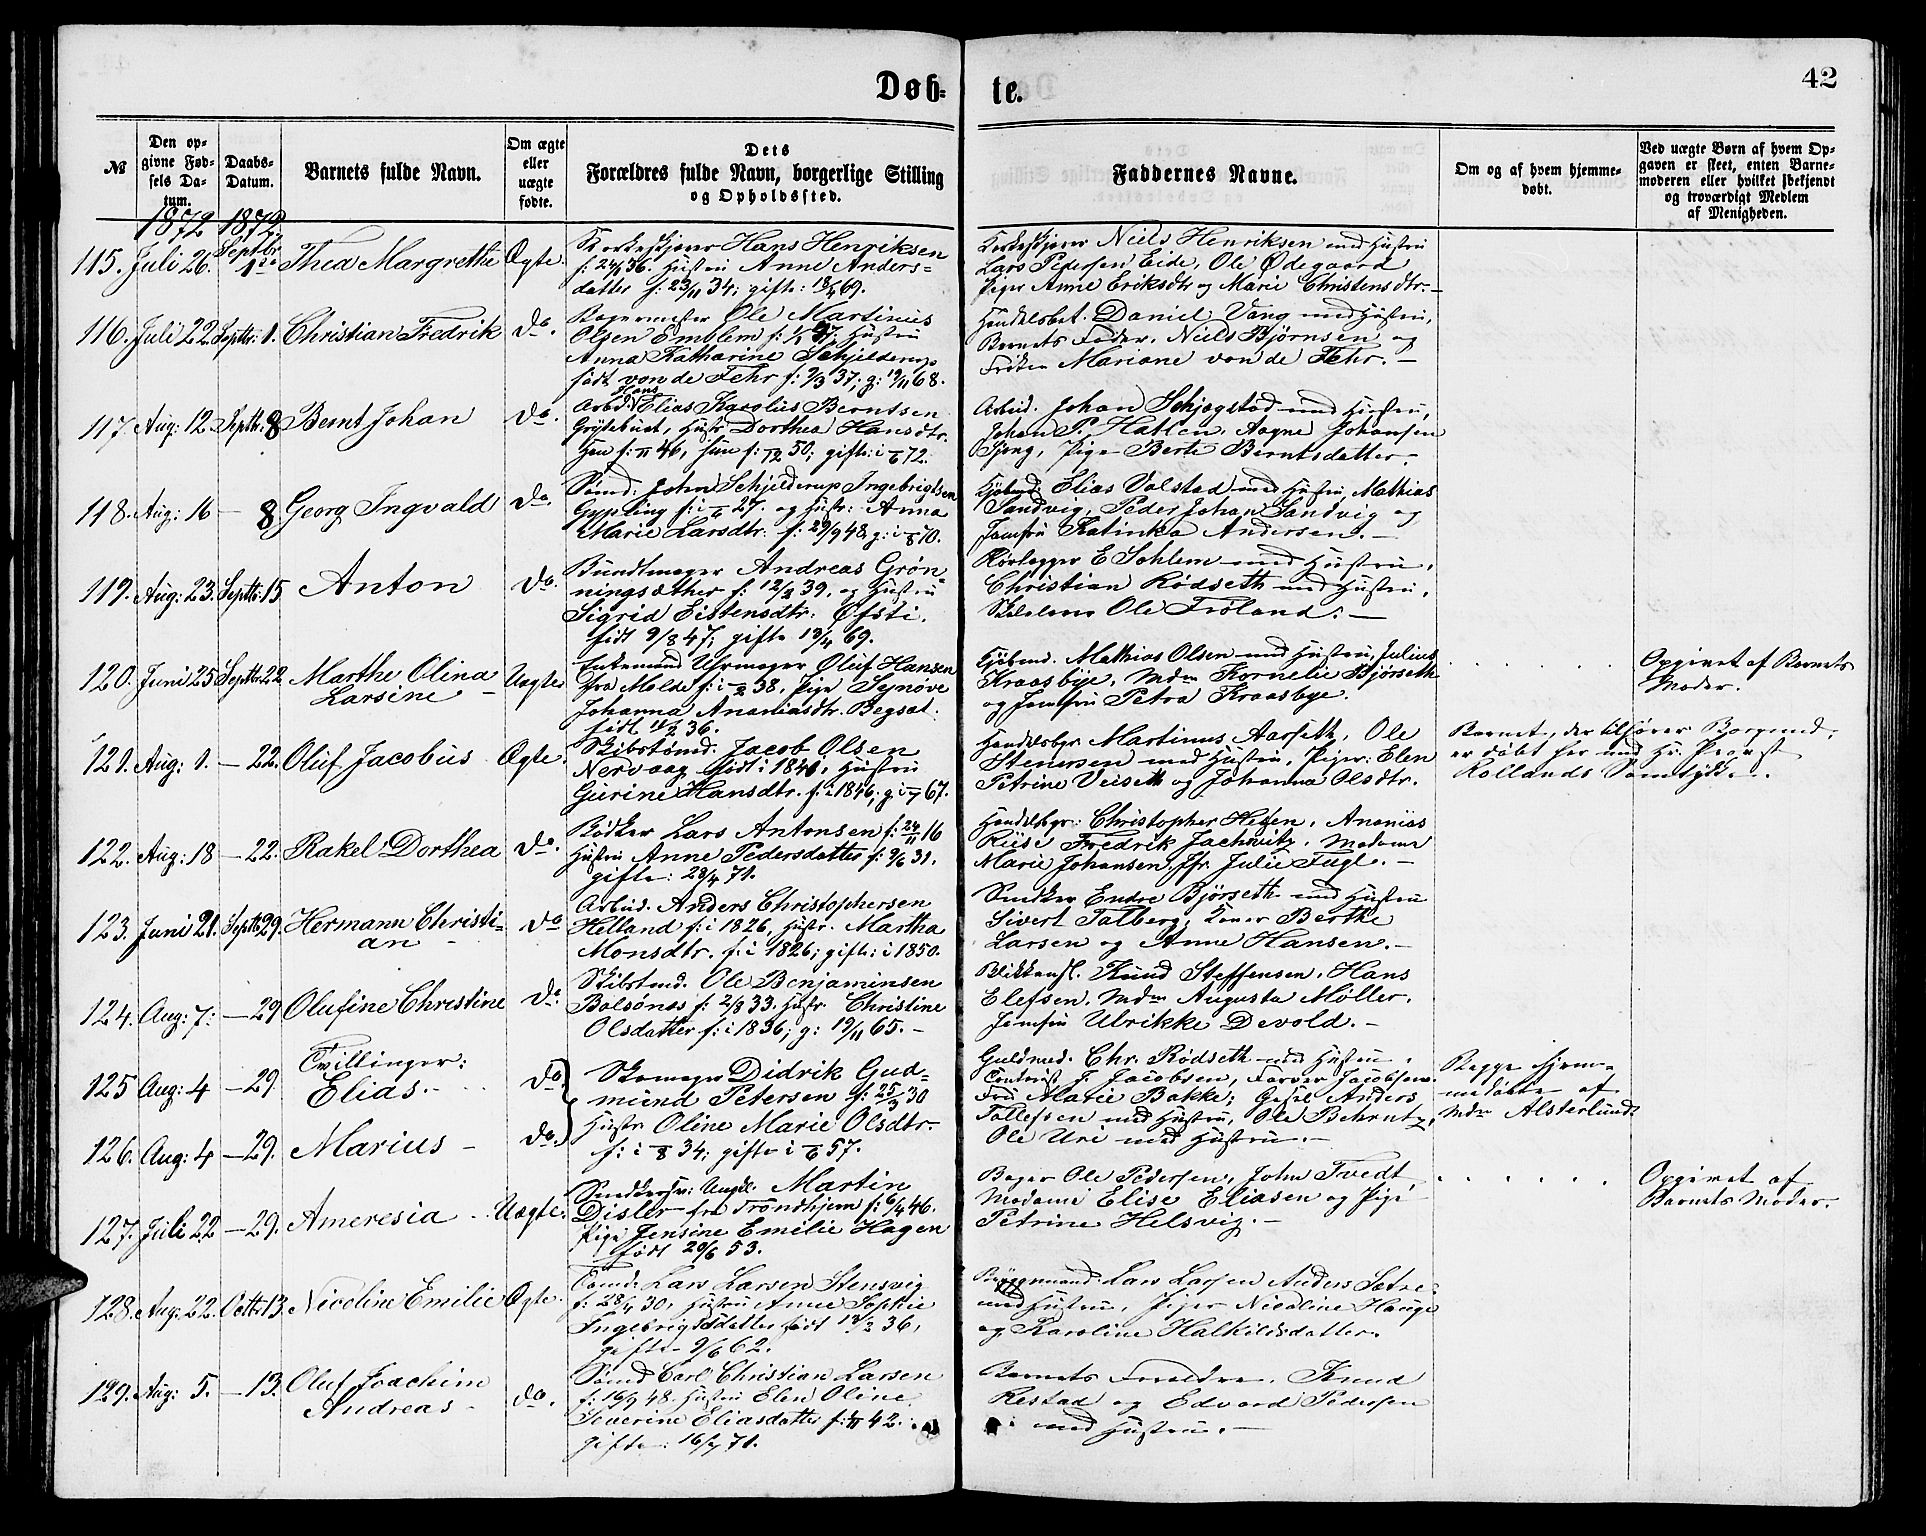 Døb-
te.
42
№
Den op-
givne Fød-
sels Da-
tum.
Daabs-
Datum.
Barnets fulde Navn.
Om ægte
eller
uægte
fødte.
Dets
Forældres fulde Navn, borgerlige Stilling
og Opholdssted.
Faddernes Navne.
Om og af hvem hjemme-
døbt.
Ved uægte Børn af hvem Op-
gaven er skeet, enten Barne-
moderen eller hvilket bekjendt
og troværdigt Medlem
af Menigheden.
1872 1872
115. Juli 26. Septbr 1ste Thea Margrethe Ægte.
Hans Henriksen
f: 24/1 36. Hustru Anne Anders-
datter f: 23/11 34; gifte: 18/4 69.
Niels Henriksen med Hustru
Lars Pedersen Eide, Ole Ødegaard
Piger Anne Eriksdtr og Marie Christensdtr.-
116. Juli 22. Septbr: 1. Christian Fredrik do.
Bagermester Ole Martinus
Olsen Emblem Hustru
Anna Katharine Schjelderup
født von de Fehr f: 9/3 37; g: 19/11 68.
Handelsbet. Daniel Vang med Hustru,
Barnets Fader, Niels Bjørnsen og
Frøken Mariane von de Fehr. -
117. Aug: 12. Septbr: 8 Bernt Johan do.
Arbd: Hans Elias Karolus Berntsen
Hustr Dorthea Hansdtr.
Han f: 11 46, hun f: 12 50; gifte: i 6 72.
Arbeid. Johan Schjegstad med Hustru,
Johan P. Hatlen, Aagne Johansen
Pige Berte Berntsdatter.
118. Aug: 16 — 8 Georg Ingvald do
Sømd: John Schjelderup Ingebrigtsen
f: i 27. og Hustr: Anna
Marie Larsdtr: f: 29/9 48, g: i 8 70.
Kjøbmd Elias Valstad med Hustru, Mathias
Sandvig, Peder Johan Sandvig og
Jomfru Katinka Andersen. -
119. Aug: 23. Septbr: 15 Anton do.
Bundtmager Andreas Grøn-
ningsæther f: 12/2 39, og Hustru
Sigrid Eistensdtr: Øfsti.
født 9/8 47; gifte 13/4 69.
E Sohlem med Hustru,
Christian Rødseth med Hustru,
Ole Frøland. -
120. Juni 25 Septbr 22. Marthe Olina Larsine Uægte
Enkemand Uhrmager Oluf Hansen
fra Molde f: i 2 38, Pige Synøve
Johanna Ananiasdtr. Begset.
født 11/2 36.
Kjøbmd. Mathias Olsen med Hustru, Julius
Kraasbye, Mdm Kornelie Bjørseth
og Jomfru Petra Kraasbye.
Opgivet af Barnets
Moder.
121. Aug: 1. — 22. Oluf Jacobus Ægte.
Skibstømd: Jacob Olsen
Nervaag født i 1840, Hustru
Gurine Hansdtr. f: i 1846; g: i 7 67.
Handelsbgr Martinus Aarseth, Ole
Stenersen med Hustru, Piger: Elen
Petrine Veiseth og Johanna Olsdtr.
Barnet, der tilhører Borgund,
er døbt her med Hr: Provst
Kollands Samtykke.
122. Aug: 18 — 22. Rakel Dorthea do.
Bødker Lars Antonsen f: 24/11 16
Hustru Anne Pedersdatter f: 9/6 31,
gifte: 28/4 71.
Handelsbgr: Christopher Helsen, Ananias
Riise Fredrik Jachwitz, Madame
Marie Johansen, Jfr. Julie Fugl. -
123. Juni 21. Septbr 29. Hermann Christi-
an do
Arbeid. Anders Christophersen
Helland f: i 1826, Hustr. Martha
Monsdtr. f: i 1826; gifte: i 1850.
Snedker Endre Bjørseth med Hustru
Sivert Talberg, Koner Berthe
Larsen og Anne Hansen. -
124. Aug: 7: — 29 Olufine Christine do
Skibstmd. Ole Benjaminsen
Bolsønes f: 2/8 33. Hustr. Christine
Olsdatter f: i 1836; g: 19/11 65. -
Knud Steffensen, Hans
Elefsen, Mdm Augusta Møller,
Jomfru Ulrikke Devold. -
125 Aug: 4 — 29 Tvillinger:
Elias. do.
126. Aug: 4 — 29. Marius - do.
Skomager Didrik Gud-
mund Petersen f: 25/3 30
Hustr Oline Marie Olsdtr.
f: i 8 34; gifte i 6 57.
Guldsmd. Chr. Rødseth med Hustru,
J. Jacobsen, Farver Jacobsen.
Fru Marie Bakke; Anders
Tollefsen med Hustru, Ole Behrentz,
Ole Uri med Hustru. -
Begge hjem-
medøbte af
Mdm Alsterlund
127. Juli 22 — 29. Ameresia - Uægte.
Snedkersv: Ungk. Martin
Disler fra Trondhjem f: 6/4 46.
Pige Jensine Emilie Hagen
født 20/6 53.
Bager Ole Pedersen, John Tvedt,
Madame Elise Eliasen og Pige
Petrine Helsvig. -
Opgivet af
Barnets Moder.
128. Aug: 22. Octbr 13. Nicoline Emilie Ægte.
Tømd: Lars Larsen Stensvig
f: 28/4 30, Hustru Anne Sophie
Ingebrigtsdatter født 18/2 36,
gifte 9/6 62.
Lars Larsen Anders Sætre
med Hustru, Piger Nicoline Hauge
og Karoline Halkildsdatter.
129. Aug: 5. — 13. Oluf Joachim
Andreas - do.
Sømd Carl Christian Larsen
f: 16/9 48. Hustru Elen Oline
Severine Eliasdatter f: 11 42.
gifte: 16/7 71.
Barnets Forældre, Knud
Restad og Edvard Pedersen
med Hustru. -